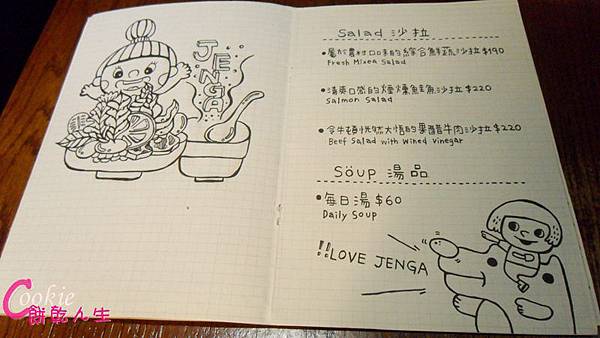 JENGA
Salad 沙拉
•屬於農村口味的綜合鮮蔬沙拉 $190
Fresh Mixea Salad
•清爽口感的煙燻鮭魚沙拉 $220
Salmon Salad
•令牛頓恍然大悟的果醋牛肉沙拉 $220
Beef Salad with Wined Vinegar
Soup 湯品
•每日湯 $60
Daily Soup
!!LOVE JENGA
Cookie
餅乾人生